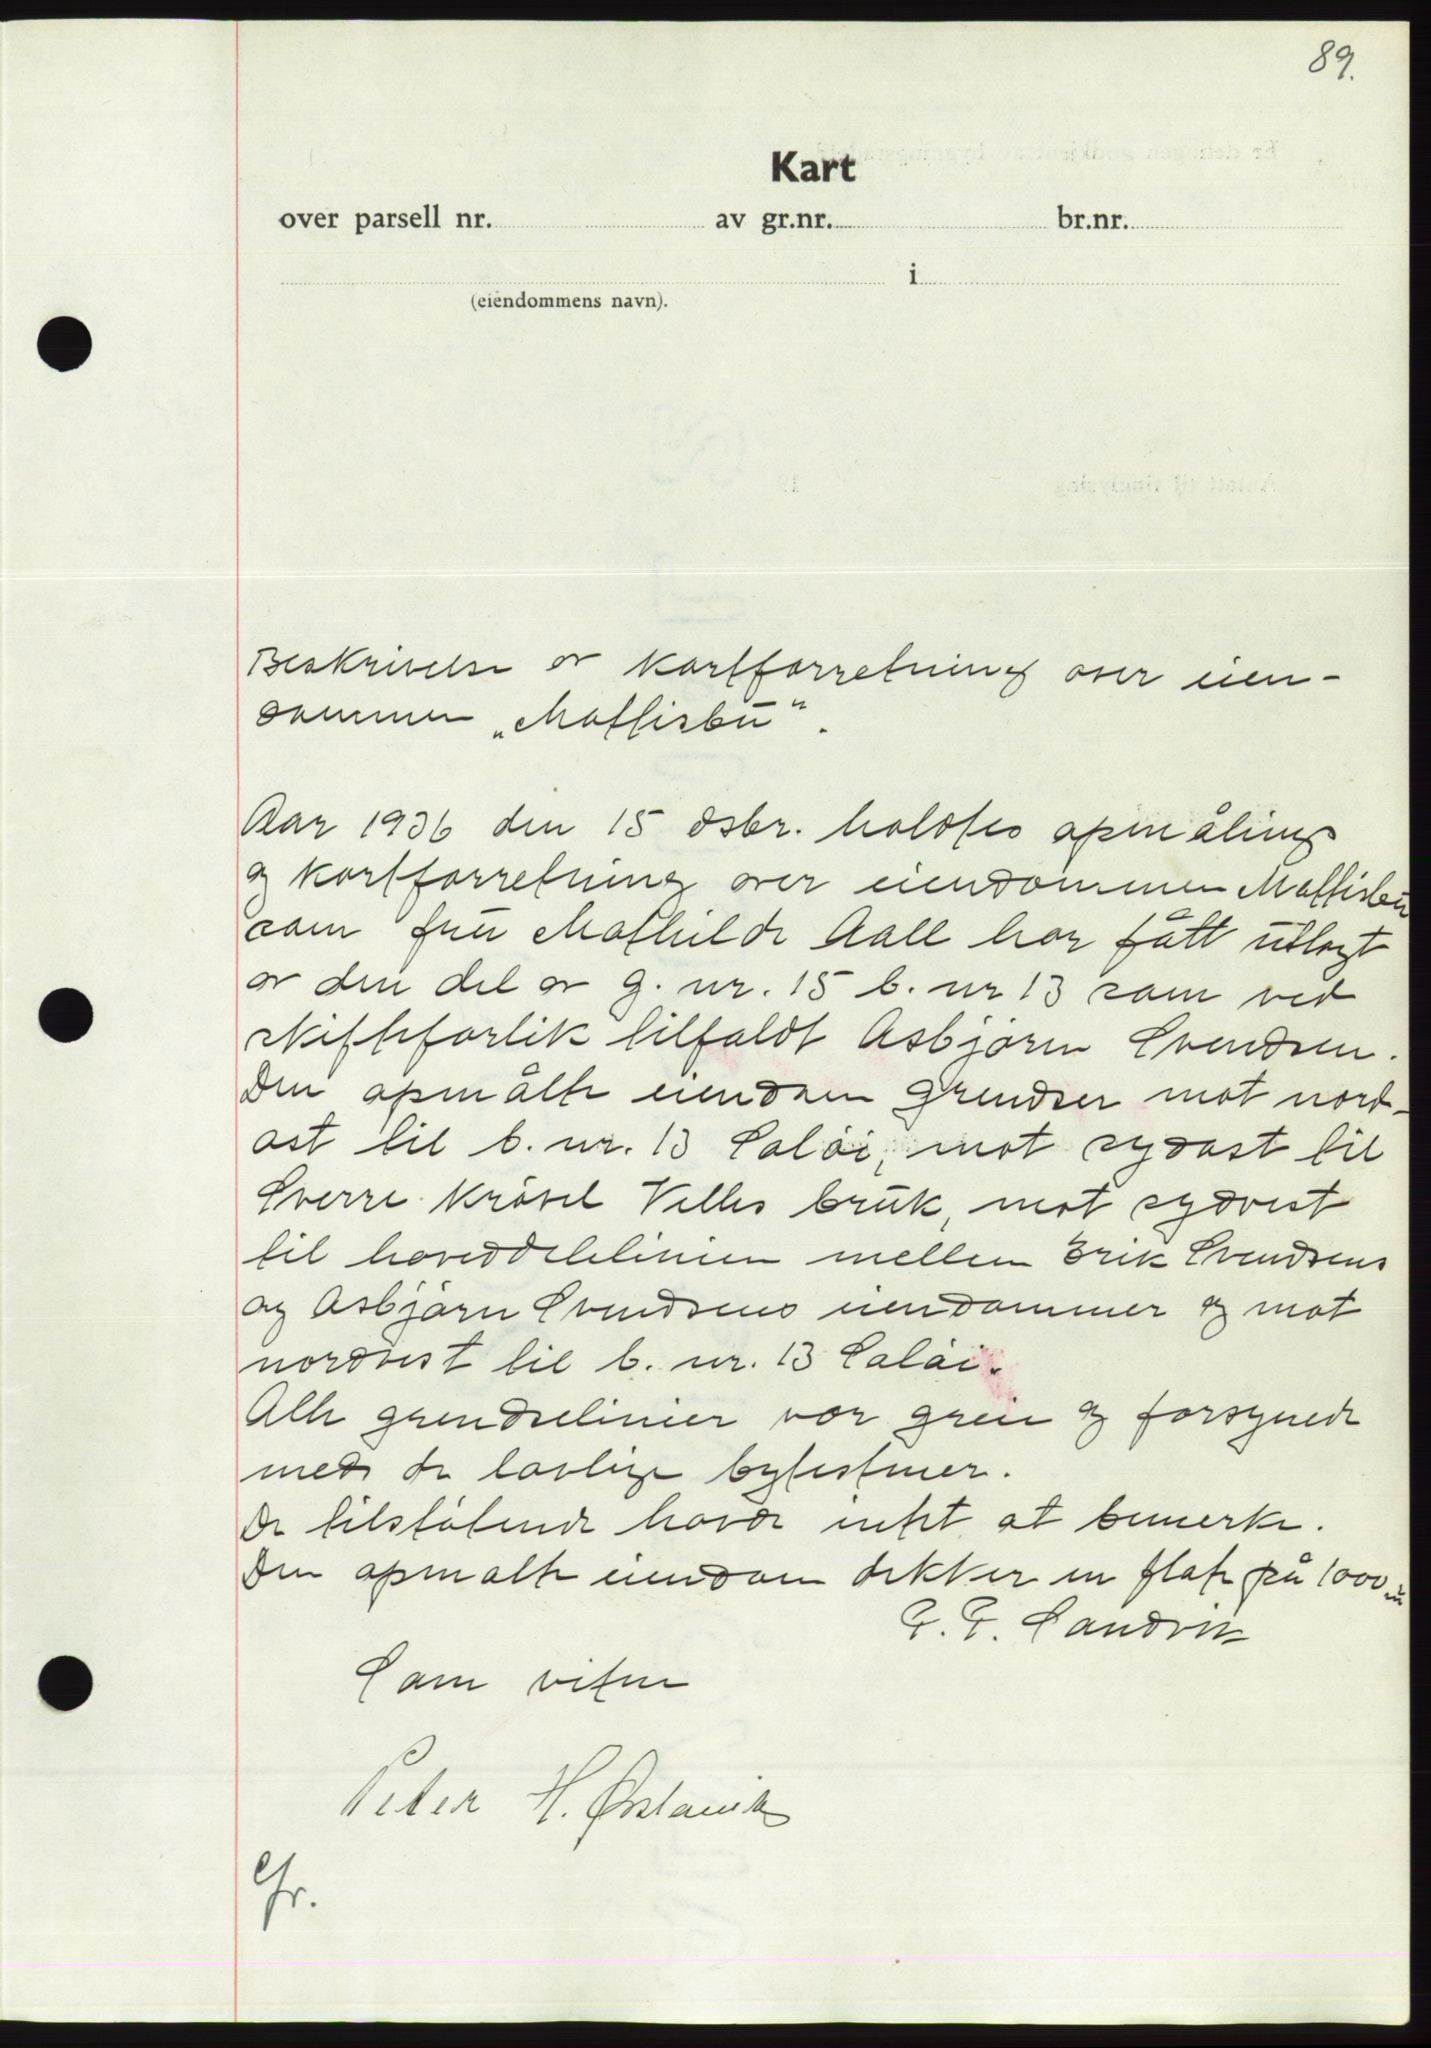 89.
Kart
over parsell nr. av gr.nr. br.nr.
i
(eiendommens navn).
Beskrivelse av kartforretning over eien-
dommen „Mattisbu".
Aar 1936 den 15 dsbr. holdtes opmåling
og kartforretning over eiendommen Mattisbu
som fru Mathilde Aall har fått utlagt
av den del av g. nr. 15 b. nr 13 som ved
skifteforlik tilfaldt Asbjørn Svendsen.
Den opmålte eiendom grendser mot nord-
ost til b. nr. 13 Saløi, mot sydost til
Sverre Krøsel Velles bruk, mot sydvest
til hoveddelelinien mellem Erik Svendsens
og Asbjørn Svendsens eiendommer og mot
nordvest til b. nr. 13 Saløi.
Alle grendselinier var greie og forsynede
med de lovlige bytestener.
De tilstøtende havde intet at bemerke.
Den opmålte eiendom dekker en flate på 1000 m²
Sandvik
Som vitne
Peter H.